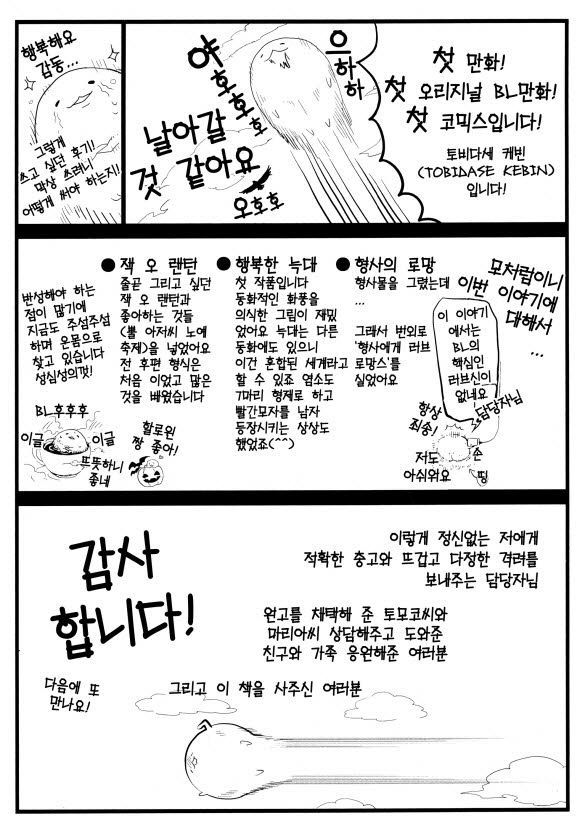 첫 만화!
첫 오리지널 BL만화!
첫 코믹스입니다!
토비다세 케빈
(TOBIDASE KEBIN)
입니다!
으하하
야호호호호
날아갈
것 같아요
오호호
행복해요
감동...
그렇게
쓰고 싶던 후기!
막상 쓰려니
어떻게 써야 하는지!
모처럼이니
이번
이야기에
대해서
...
● 형사의 로망
형사물을 그렸는데
...
그래서 번외로
'형사에게 러브
로망스'를
실었어요
이 이야기
에서는
BL의
핵심인
러브신이
없네요
담당자님
항상
죄송!
저도
아쉬워요
손
띵
● 행복한 늑대
첫 작품입니다
동화적인 화풍을
의식한 그림이 재밌
었어요 늑대는 다른
동화에도 있으니
이건 혼합된 세계라고
할 수 있죠 염소도
7마리 형제로 하고
빨간모자를 남자
등장시키는 상상도
했었죠(^^)
● 잭 오 랜턴
줄곧 그리고 싶던
잭 오 랜턴과
좋아하는 것들
(뿔 아저씨 노예
축제)을 넣었어요
전 후편 형식은
처음 이었고 많은
것을 배웠습니다
할로윈
짱 좋아!
반성해야 하는
점이 많기에
지금도 주섬주섬
하며 온몸으로
찾고 있습니다
성심성의껏!
BL후후후
이글
이글
뜨뜻하니
좋네
이렇게 정신없는 저에게
적확한 충고와 뜨겁고 다정한 격려를
보내주는 담당자님
원고를 채택해 준 토모코씨와
마리아씨 상담해주고 도와준
친구와 가족 응원해준 여러분
그리고 이 책을 사주신 여러분
감사
합니다!
다음에 또
만나요!